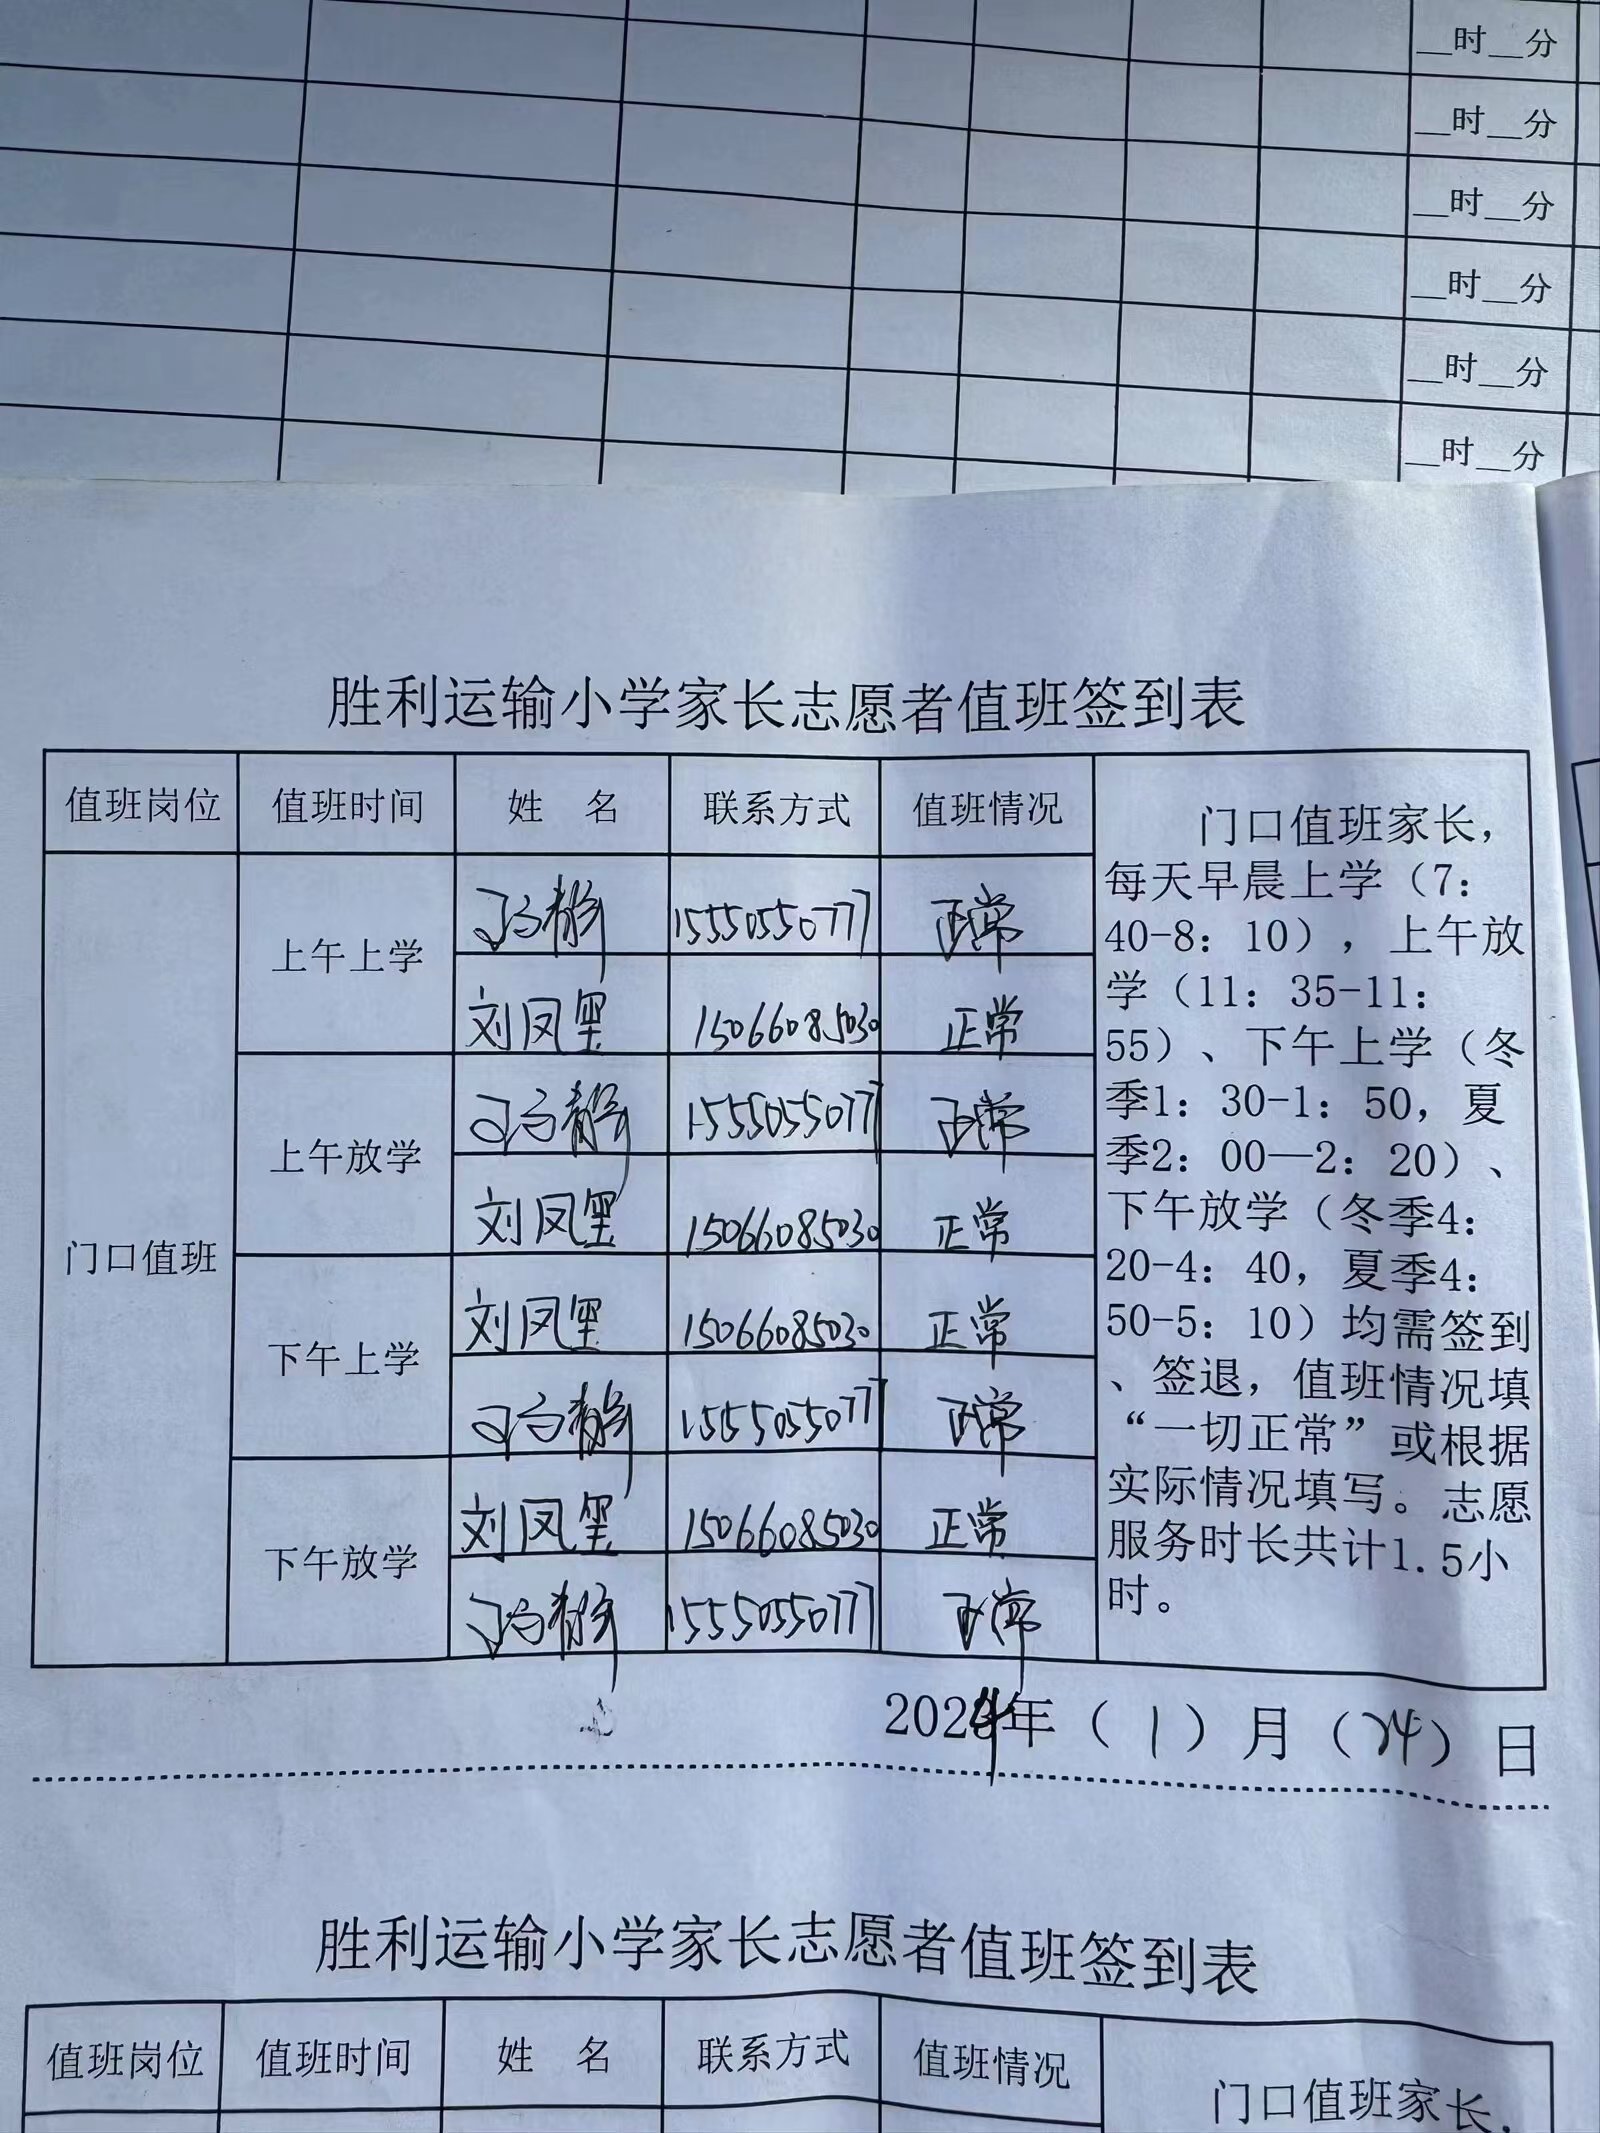 __时__分
__时__分
__时__分
__时__分
__时__分
__时__分
胜利运输小学家长志愿者值班签到表
值班岗位 值班时间 姓 名 联系方式 值班情况
门口值班家长，
每天早晨上学（7：
40-8：10），上午放
学（11：35-11：
55）、下午上学（冬
季1：30-1：50，夏
季2：00—2：20）、
下午放学（冬季4：
20-4：40，夏季4：
50-5：10）均需签到
、签退，值班情况填
“一切正常”或根据
实际情况填写。志愿
服务时长共计1.5小
时。
门口值班
上午上学 15550550777 正常
刘凤 15066085030 正常
上午放学 1555055077 正常
刘凤 15066085030 正常
下午上学 刘凤 15066085030 正常
15550550777 正常
下午放学 刘凤 15066085030 正常
15550550777 正常
2024年（1）月（24）日
胜利运输小学家长志愿者值班签到表
值班岗位 值班时间 姓 名 联系方式 值班情况
门口值班家长，